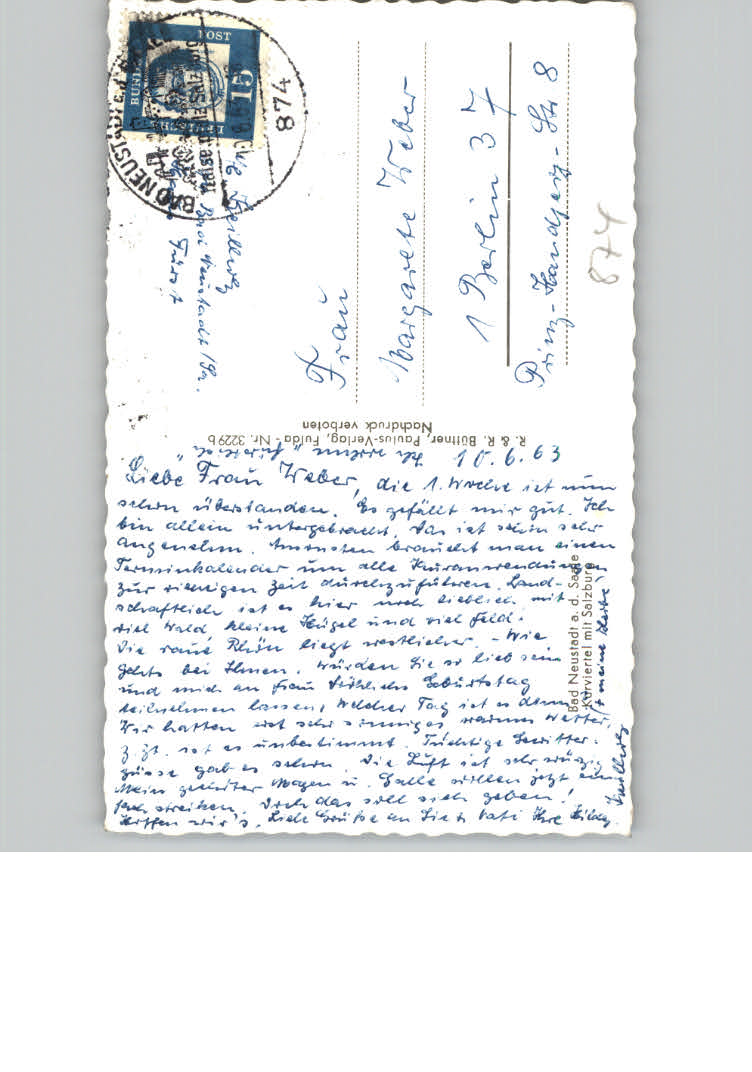 DEUTSCHE
BUNDESPOST
15
BAD NEUSTADT
874
Bad Neustadt / Sa.
Frau
Margarete Weber
1 Berlin 37
Prinz-Handjery-Str 8
874
R. & R. Büttner, Paulus-Verlag, Fulda - Nr. 3229 b
Nachdruck verboten
Bad Neustadt a. d. Saale
Kurviertel mit Salzburg
Ich wohne
10.6.63
Liebe Frau Weber, die 1. Woche ist nun
schon überstanden. Es gefällt mir gut. Ich
bin allein untergebracht. Das ist schon sehr
angenehm. Ansonsten braucht man einen
Terminkalender um alle Kuranwendungen
zur richtigen Zeit durchzuführen. Land-
schaftlich ist es hier noch lieblich mit
viel Wald, kleine Hügel und viel Feld.
Die rauhe Rhön liegt westlicher. - Wie
gehts bei Ihnen. Würden Sie so lieb sein
und mich an Frau Geburtstag
teilnehmen lassen, welcher Tag ist es denn?
Wir hatten erst sehr sonniges warmes Wetter,
z. Zt. ist es unbestimmt. Tüchtige Gewitter-
güsse gab es schon. Die Luft ist sehr würzig
Mein Magen u. Galle wollen jetzt
streiken. Doch das soll sich geben!
Hoffen wir's. Liebe Grüße an Sie + Vati Ihre